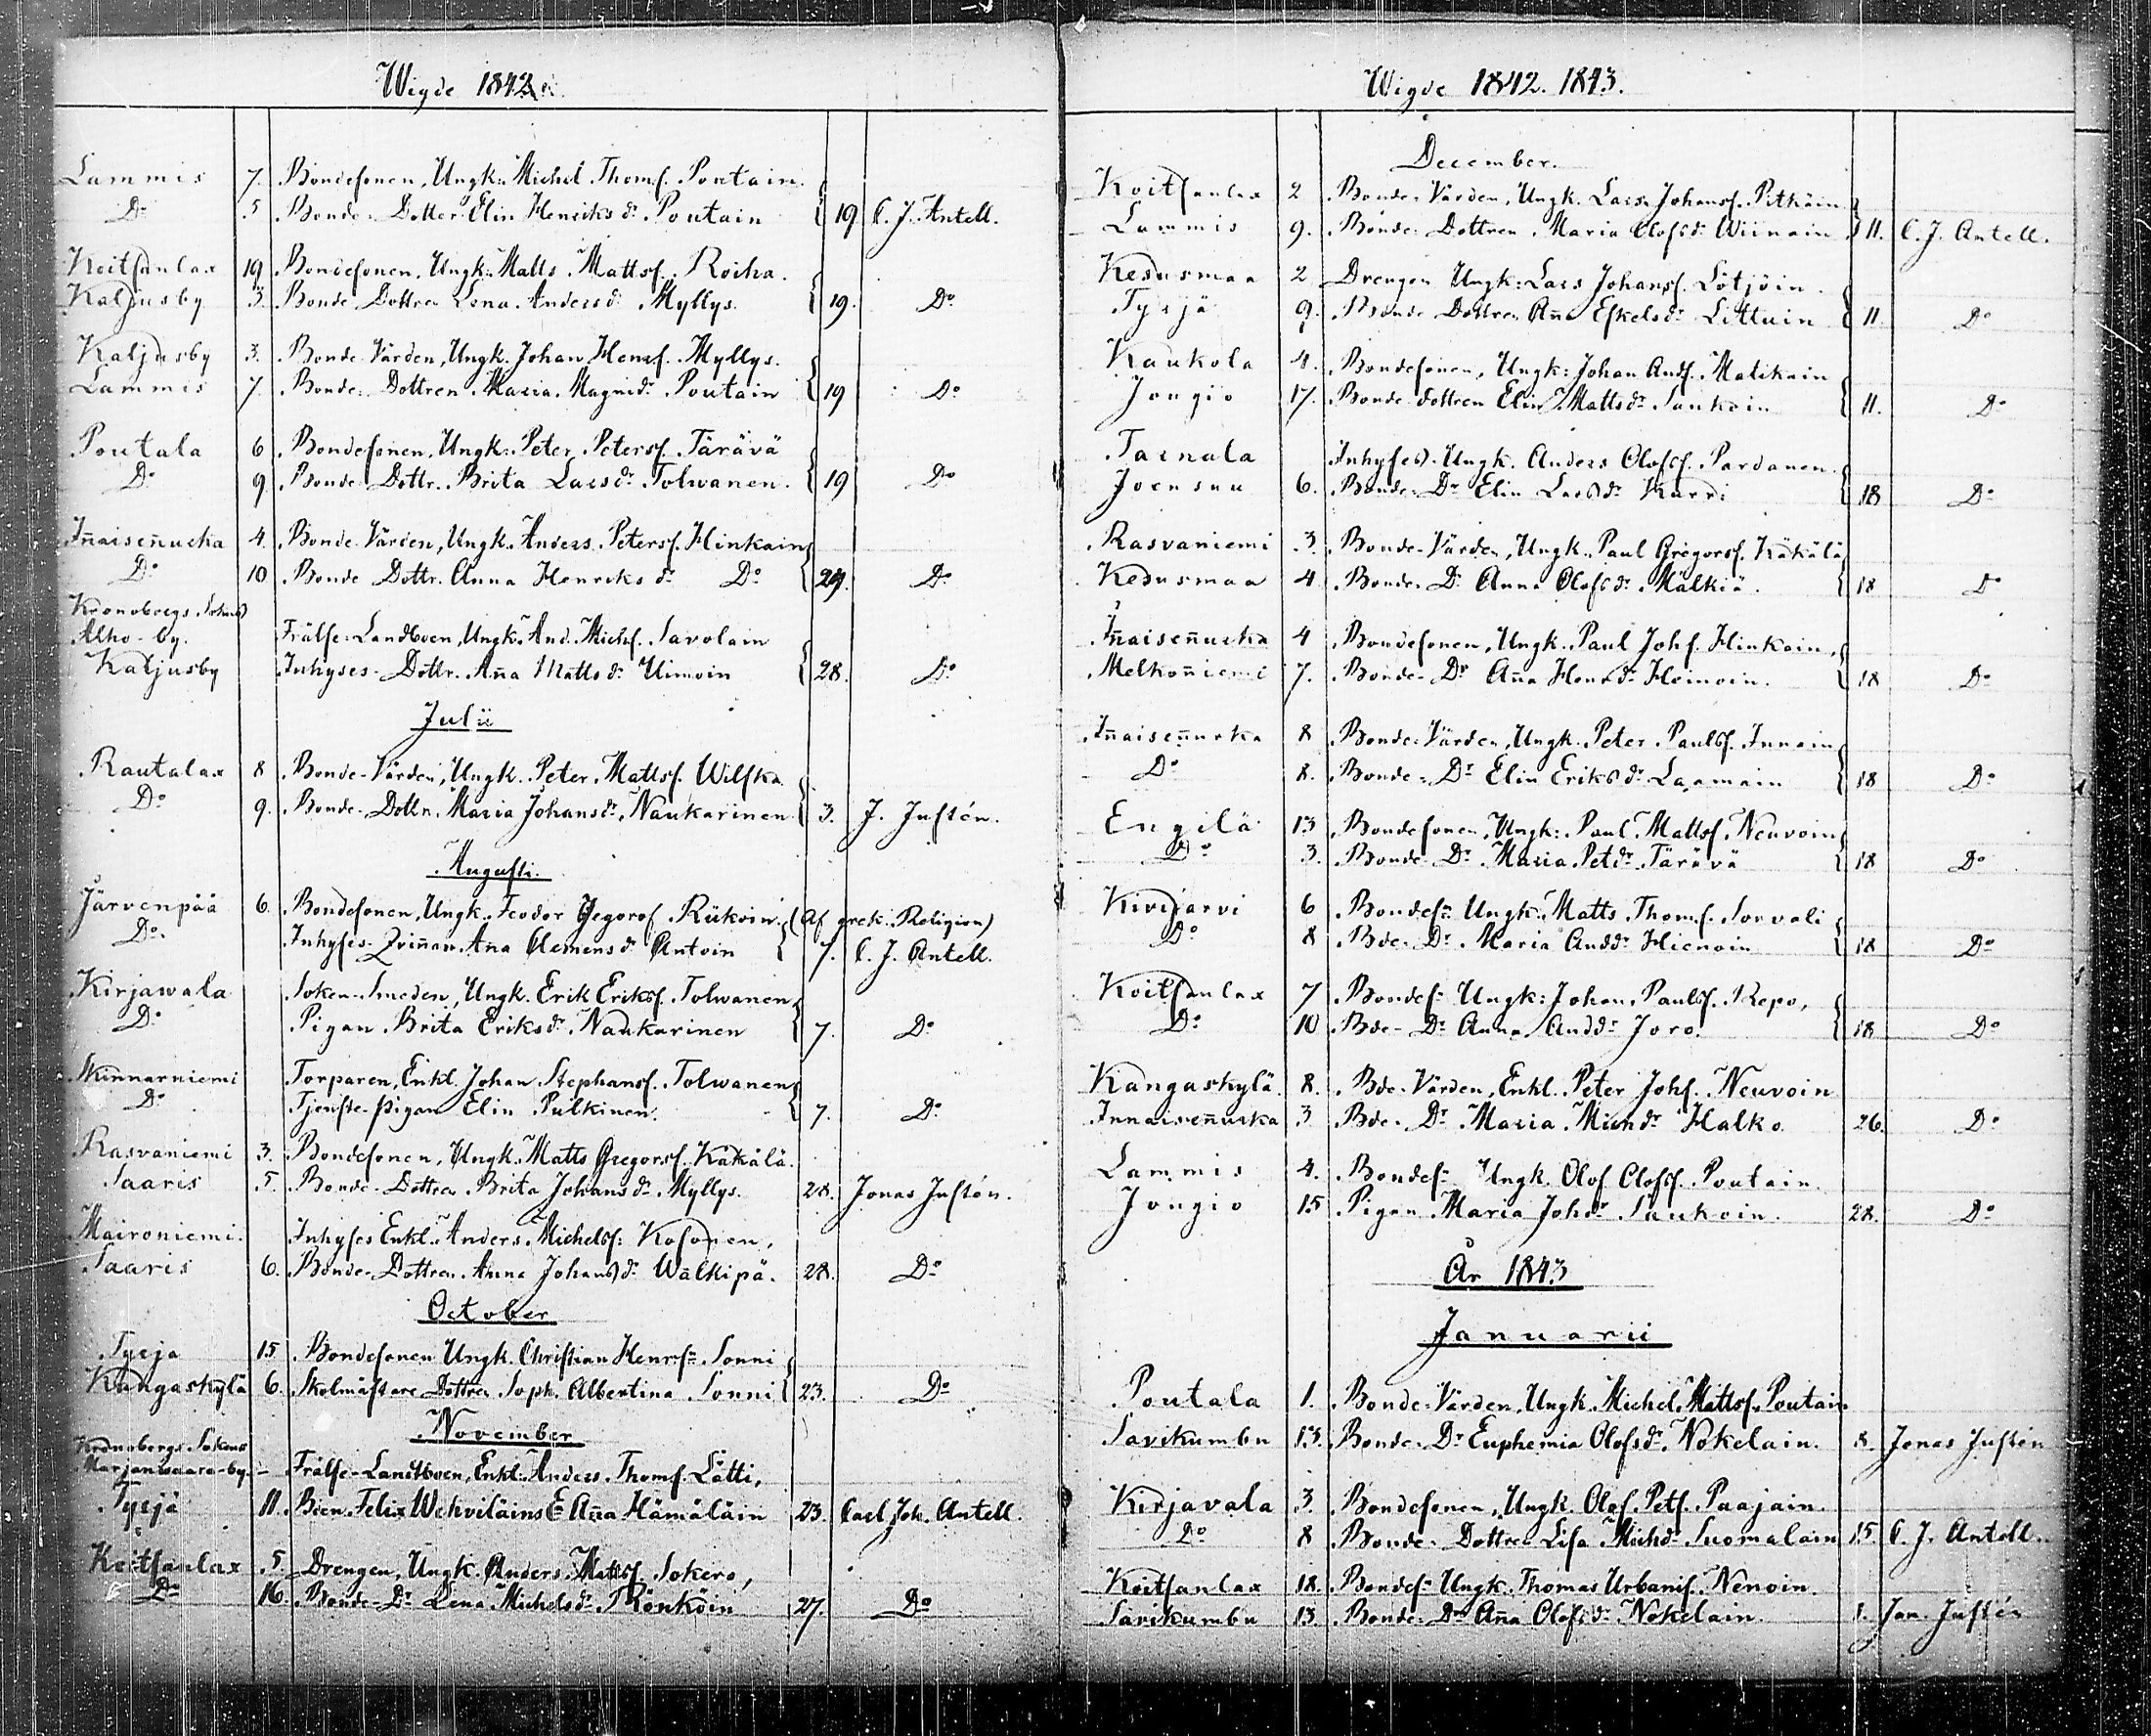 Wigde 1842.
Lammis 7. Bondesonen, Ungk. Michel Thoms. Poutain.
Do 5 Bonde-Dotter Elin Henriks dr Poutain 19 C. J. Antell.
Koitsanlax 19. Bondesonen, Ungk. Matts Mattss. Roiha.
Kaljusby 3. Bonde Dottren Lena Anders dr Myllys. 19. Do
Kaljusby 3. Bonde Värden, Ungk. Johan Henrs. Myllys.
Lammis 7. Bonde-Dottren Maria Magnidr Poutain 19 Do
Poutala 6 Bondesonen, Ungk. Peter Peterss. Tärävä
Do 9. Bonde Dottr. Brita Larsdr Tolwanen. 19 Do
Iñaiseñurka 4. Bonde Värden, Ungk. Anders Peterss. Hinkain
Do 10 Bonde Dottr. Anna Henriks dr Do 29. Do
Kronoborgs Sokns
Alho-by. Frälse-Landboen, Ungk. And. Michs. Savolain
Kaljusby Inhyses-Dottr. Aña Matts dr Uimoin 28. Do
Julii
Rautalax 8 Bonde-Värden, Ungk. Peter Mattss. Wilska.
Do 9. Bonde-Dottr. Maria Johansdr Naukarinen 3. J. Justén.
Augusti.
Järvenpää 6. Bondesonen, Ungk. Feodor Jegorof Riikoin (Af grek. Religion)
Do. Inhyses-Qviñan Aña Clemens dr Antoin 7. C. J. Antell.
Kirjawala Soken-Smeden, Ungk. Erik Erikss. Tolwanen
Do Pigan Brita Eriksdr Naukarinen 7. Do
Skinnarniemi Torparen, Enkl. Johan Stephanss. Tolwanen
Do Tjenste-pigan Elin Pulkinen. 7. Do
Rasvaniemi 3. Bondesonen, Ungk. Matts Gregorss. Käkälä.
Saaris 5. Bonde-Dottren Brita Johans dr Myllys. 28. Jonas Justén.
Maironiemi. Inhyses Enkl. Anders Michelss: Kosonen,
Saaris 6. Bonde-Dottren Anna Johans dr Wälkipä. 28. Do
October
Tyrjä 15 Bondesonen Ungk. Christian Henrssn Sonni
Kangaskylä 6. Skolmästare Dottren Soph. Albertina Sonni 23. Do
November
Kronoborgs Sokns
Marjanwaara-by - Frälse-Landtboen, Enkl. Anders Thoms. Lätti,
Tyrjä 11. Bien. Felix Wehviläins Ea Aña Hämäläin 23. Carl Joh. Antell.
Koitsanlax 5. Drengen, Ungk. Anders Mattss. Sokero,
Do 16. Bonde-Dr Lena Michelsdr Rönköin 27. Do
Wigde 1842. 1843.
December.
Koitsanlax 2 Bonde-Värden, Ungk. Lars Johanss. Pitkäin
Lammis 9. Bonde-Dottren Maria Olofsdr Wiinain 11. C. J. Antell.
Kesusmaa 2 Drengen Ungk: Lars Johanss. Lötjöin.
Tyrjä 9. Bonde Dottren Aña Eskelsdr Littuin 11. Do
Kaukola 4. Bondesonen, Ungk: Johan Ands. Matikain
Jougio 17. Bonde-dottren Elin Mattsdr Saukoin 11. Do
Tarnala Inhyses-Ungk. Anders Olofss. Pardanen.
Joensuu 6. Bonde-Dr Elin Larsdr Kurri 18 Do
Rasvaniemi 3. Bonde-Värden, Ungk. Paul Gregorss. Käkälä
Kesusmaa 4 Bonde-Dr Anna Olofsdr Mälkiä. 18 Do
Iñaiseñurka 4 Bondesonen, Ungk. Paul Johs. Hinkain,
Melkoñiemi 7. Bonde-Dr Aña Henrdr Heinoin. 18 Do
Iñaiseñurka 8 Bonde-Värden, Ungk. Peter Paulss. Innain
Do 8. Bonde-Dr Elin Eriksdr Laamain 18 Do
Engilä 13 Bondesonen, Ungk: Paul Mattss. Neuvoin
Do 3. Bonde-Dr Maria Petdr Tärävä 18 Do
Kivijärvi 6 Bondesn Ungk. Matts Thoms. Sorvali
Do 8 Bde-Dr Maria Anddr Hienoin 18 Do
Koitsanlax 7 Bondesn Ungk: Johan Paulss. Repo,
Do 10 Bde-Dr Anna Anddr Joro. 18 Do
Kangaskylä 8. Bde-Värden, Enkl. Peter Johs. Neuvoin
Innaiseñurka 3 Bde-Dr Maria Simdr Halko. 26. Do
Lammis 4. Bondesn Ungk. Olof Olofss. Poutain.
Jougio 15 Pigan Maria Johdr Saukoin. 28. Do
År 1843
Januarii
Poutala 1. Bonde-Värden, Ungk. Michel Mattss. Poutain
Savikumbu 13. Bonde-Dr Euphemia Olofsdr Nokelain. 8. Jonas Justén
Kirjavala 3. Bondesonen, Ungk. Olof Pets. Paajain.
Do 8 Bonde-Dottren Lisa Michdr Suomalain 15. C. J. Antell.
Koitsanlax 18. Bondesn Ungk. Thomas Urbanis. Nenoin.
Savikumbu 13. Bonde-Dr Aña Olofsdr Nokelain. 1. Jon. Justén